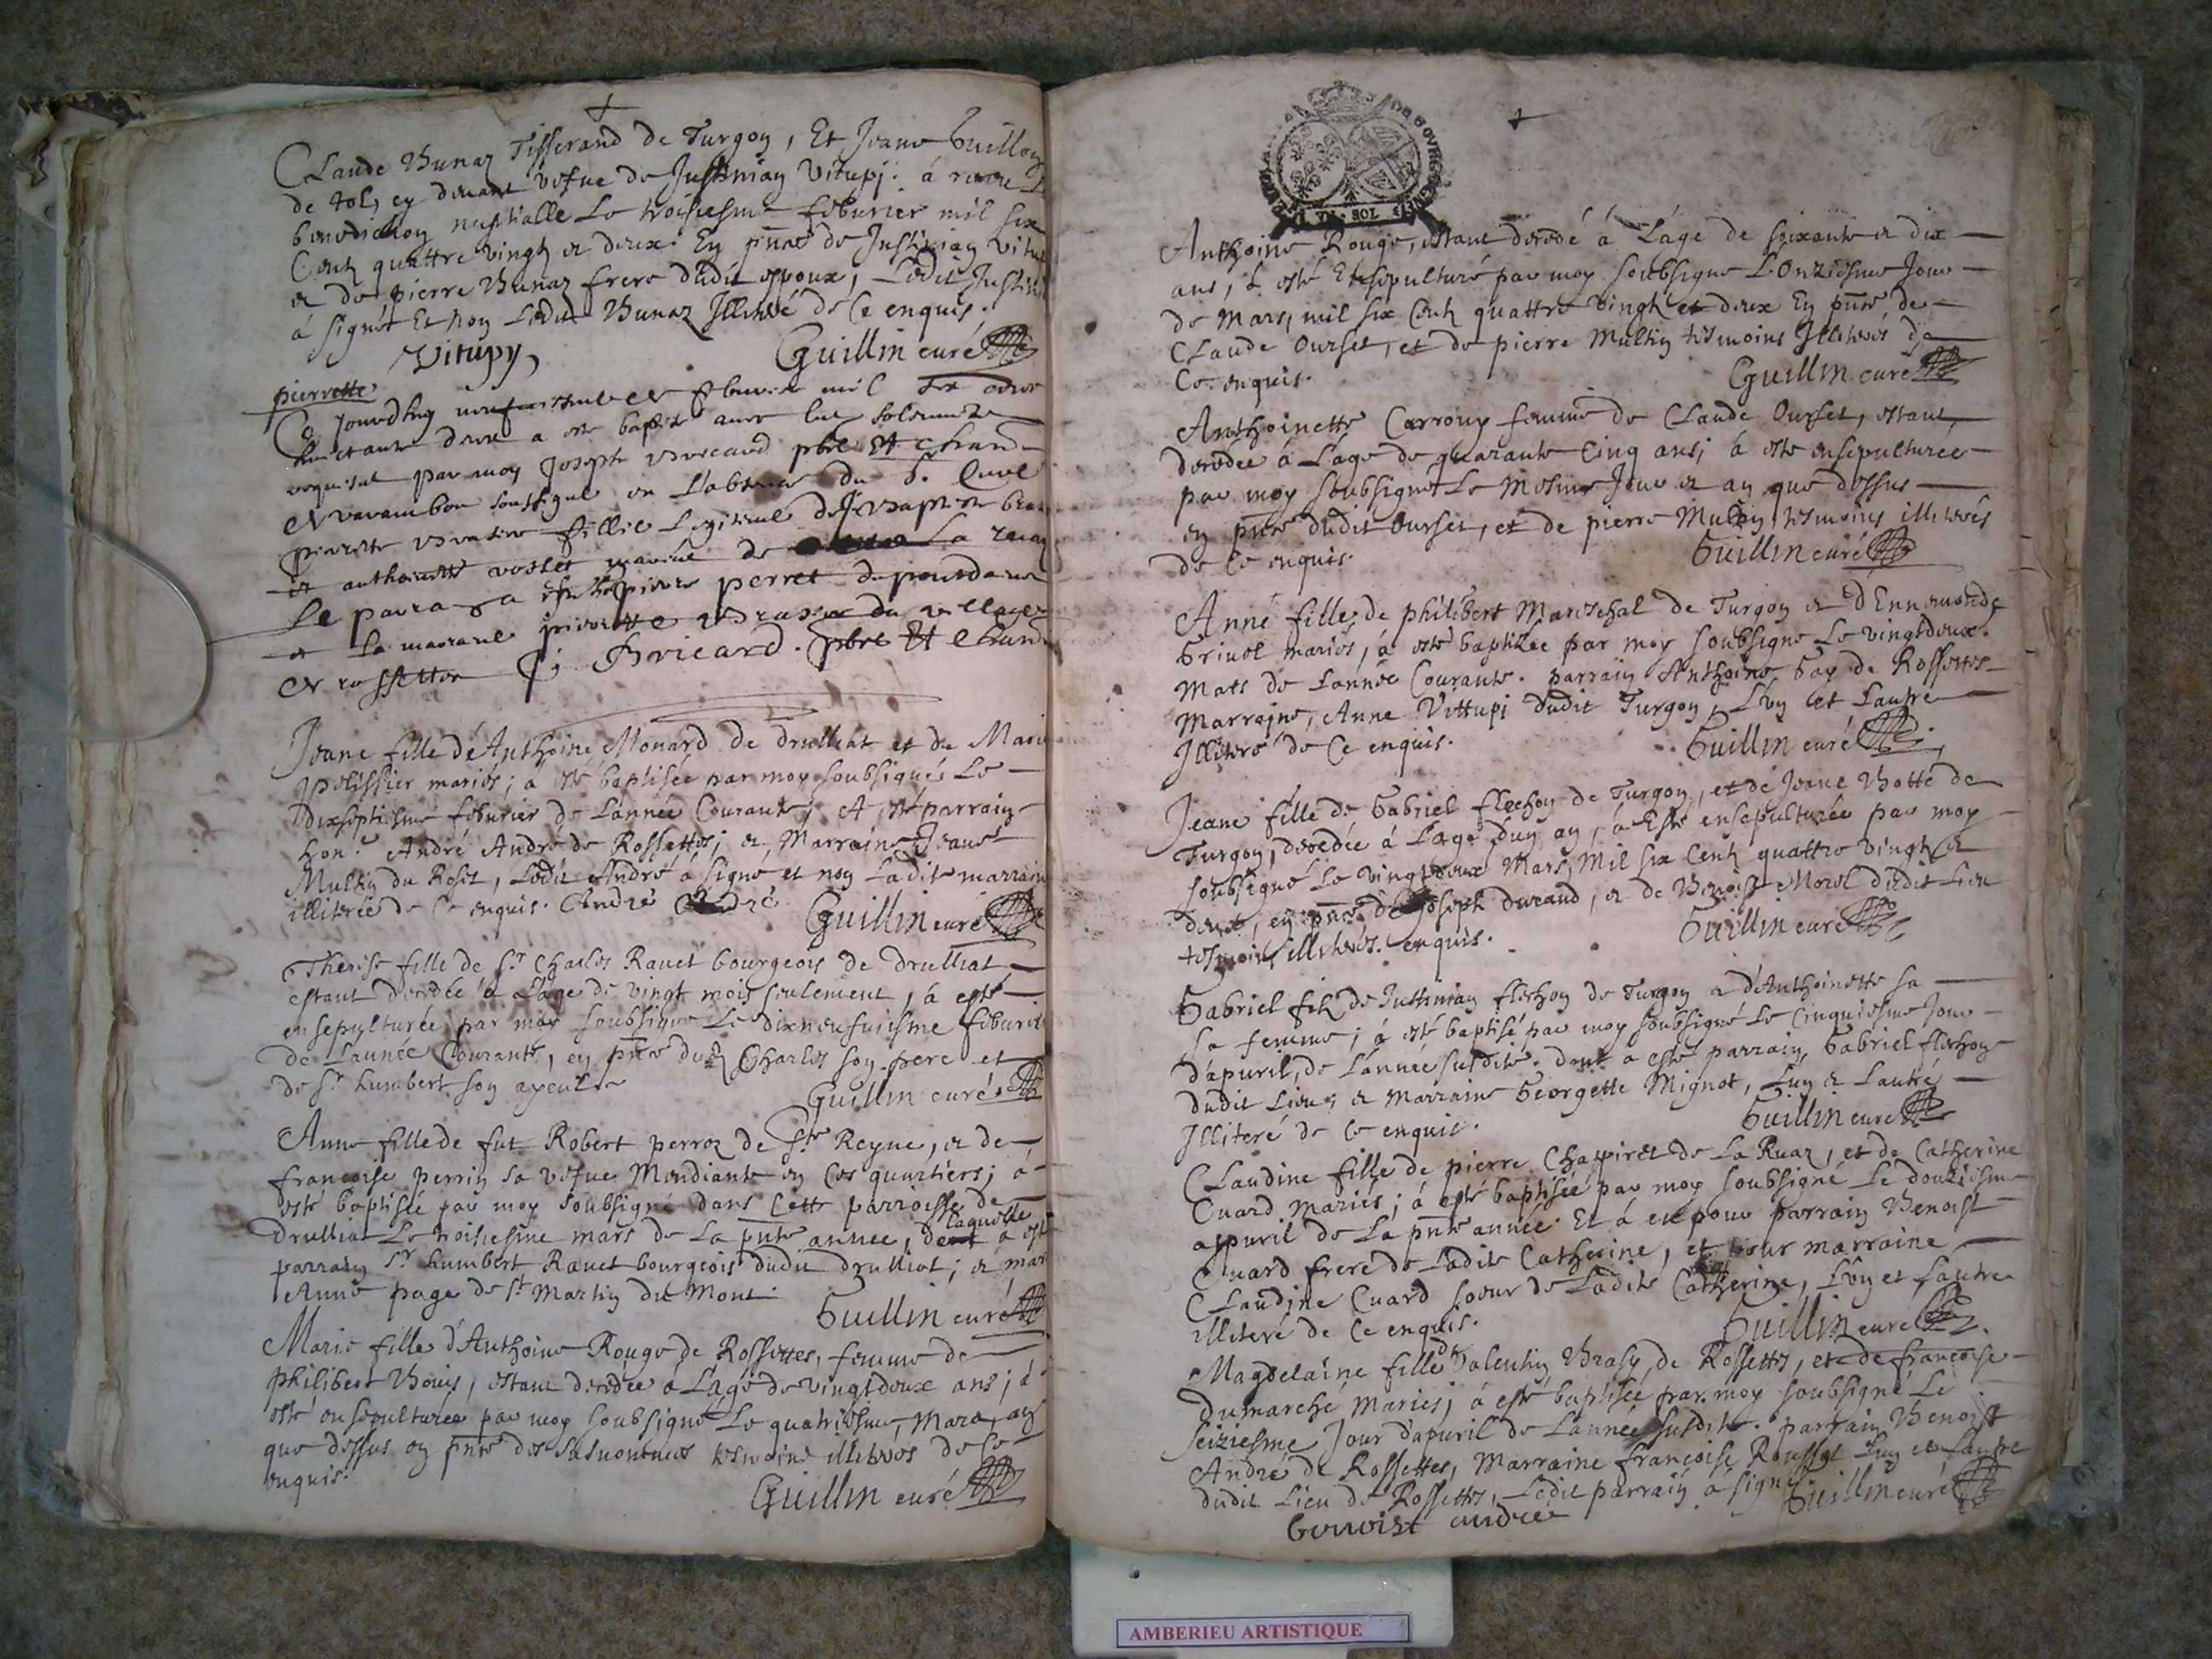 Claude Bunaz Tisserand de Turgon, Et Jeane Guillon
de Tol, cy devant vefve de Justinian Vitupj. á receu
benediction nuptialle Le troisiesme feburier mil six
Centz quattre vingtz et deux. En pñce de Justinian Vitup
et de pierre Bunaz frere dudit espoux, Ledit Justinia
á signét Et non Ledit Bunaz Illiteré de Ce enquis.
Vitupy, Guillin curé
pierrette
Ce jourdhuy feburier mil six
huictante deux a esté baptisé avec les solemnité
requisse par moy Joseph Bricard pbre et chan
de varambon soussigné en l'absence du S. Curé
pierrette fillie legitime de
et anthoinette mariée de La ruaz
Le parra a esté pierre perret du pontdains
et la maraine pierrette du village
de rossette J Bricard. pbre Et Chan
Jeane fille de Anthoine Monard de drulliat et de Marie
Pelissier mariés; a esté baptisée par moy soubsignés Le
Dixseptiesme feburier de L'année Courante; et esté parrain
hon. André André de Rossettes; et Marraine Jeane
Multin du Roset, Ledit André á signé et non Ladite marraine
illiterée de Ce enquis. André André Guillin curé
Therese fille de Sr Charles Ravet bourgeois de drulliat
estant decedée a L'age de vingt mois seulement, á esté
ensepulturée par moy soubsigné Le dixneufuiesme feburier
de L'année Courante, en pñce dudt Charles son pere et
de Sr humbert son ayeul
Guillin curé
Anne fille de fut Robert perroz de Ste Reyne, et de
françoise perrin sa vefve Mendiante en Ces quartiers; á
esté baptisée par moy Soubsigné dans Cette parroisse de
Drulliat Le troisiesme mars de La pñte année, dent Laquelle a esté
parrain Sr humbert Ravet bourgeois dudit drulliat; et mar
Anne page de St Martin du Mont.
Guillin curé
Marie fille d'Anthoine Rouge de Rossettes, femme de
philibert Bouis, estant decedée á L'age de vingtdeux ans; á
esté ensepulturée par moy soubsigné Le quatriesme, Mars, an
que dessus en pñce des tesmoins illiterés de Ce
enquis.
Guillin curé
DE BOURGOGNE
UN SOL
Anthoine Rouge, estant decedé á L'áge de soixante et dix
ans, á esté Ensepulturé par moy soubsigné L'Onziesme Jour
de Mars, mil six Centz quattre vingtz et deux En pñce de
CLaude Ourset, et de pierre Multin tesmoins Illiterés de
Ce enquis. Guillin curé
Anthoinette Carroux femme de CLaude Ourset, estant
decedée á L'áge de quarante Cinq ans; á esté ensepulturée
par moy soubsignét Le Mesme Jour et an que dessus
en pñce dudit Ourset, et de pierre Multin tesmoins illiterés
de Ce enquis. Guillin curé
Anne fille de philibert Mareschal de Turgon et d'Ennemonde
Grivel mariés, á esté baptisée par moy soubsigné Le vingtdeux
Mars de L'année Courante. parrain Anthoine Gay de Rossettes
Marraine, Anne Vittupi dudit Turgon, L'un et Lautre
Illiteré de Ce enquis. Guillin curé
Jeane fille de Gabriel flechon de Turgon, et de Jeane Botte de
Turgon, decedée á L'age d'un an, á Esté ensepulturée par moy
soubsigné Le vingtdeux Mars, Mil six Centz quattre vingtz et
deux, en pñce de Joseph durand, et de Benoist Morel dudit Lieu
tesmoins illiterés. enquis. Guillin curé
Gabriel filz de Justinian flechon de Turgon et d'Anthoinette sa
sa femme; á esté baptisé par moy soubsigné Le Cinquiesme Jour
d'apuril, de L'année susdite. dont a esté parrain, Gabriel flechon
dudit Lieu; et Marraine Georgette Mignot, L'un et Lautre
Illiteré de Ce enquis. Guillin curé
CLaudine fille de pierre Chapiret de La Ruaz, et de Catherine
Cuard Mariés; á esté baptisée par moy soubsigné Le douziesme
appuril de La pñte année. Et á eu pour parrain Benoist
Cuard frere de Ladite Catherine, et pour marraine
CLaudine Cuard soeur de Ladite Catherine, L'un et Lautre
illiteré de Ce enquis. Guillin curé
Magdelaine fille de Valentin Brasy de Rossettes, et de françoise
Dumarché Mariés; á esté baptisée par moy soubsigné Le
seiziesme Jour d'apuril de L'année susdite. parrain Benoist
André de Rossettes, Marraine françoise Rousset L'un et Lautre
dudit Lieu de Rossettes, Ledit parrain á signé Guillin curé
benoist andree
AMBERIEU ARTISTIQUE